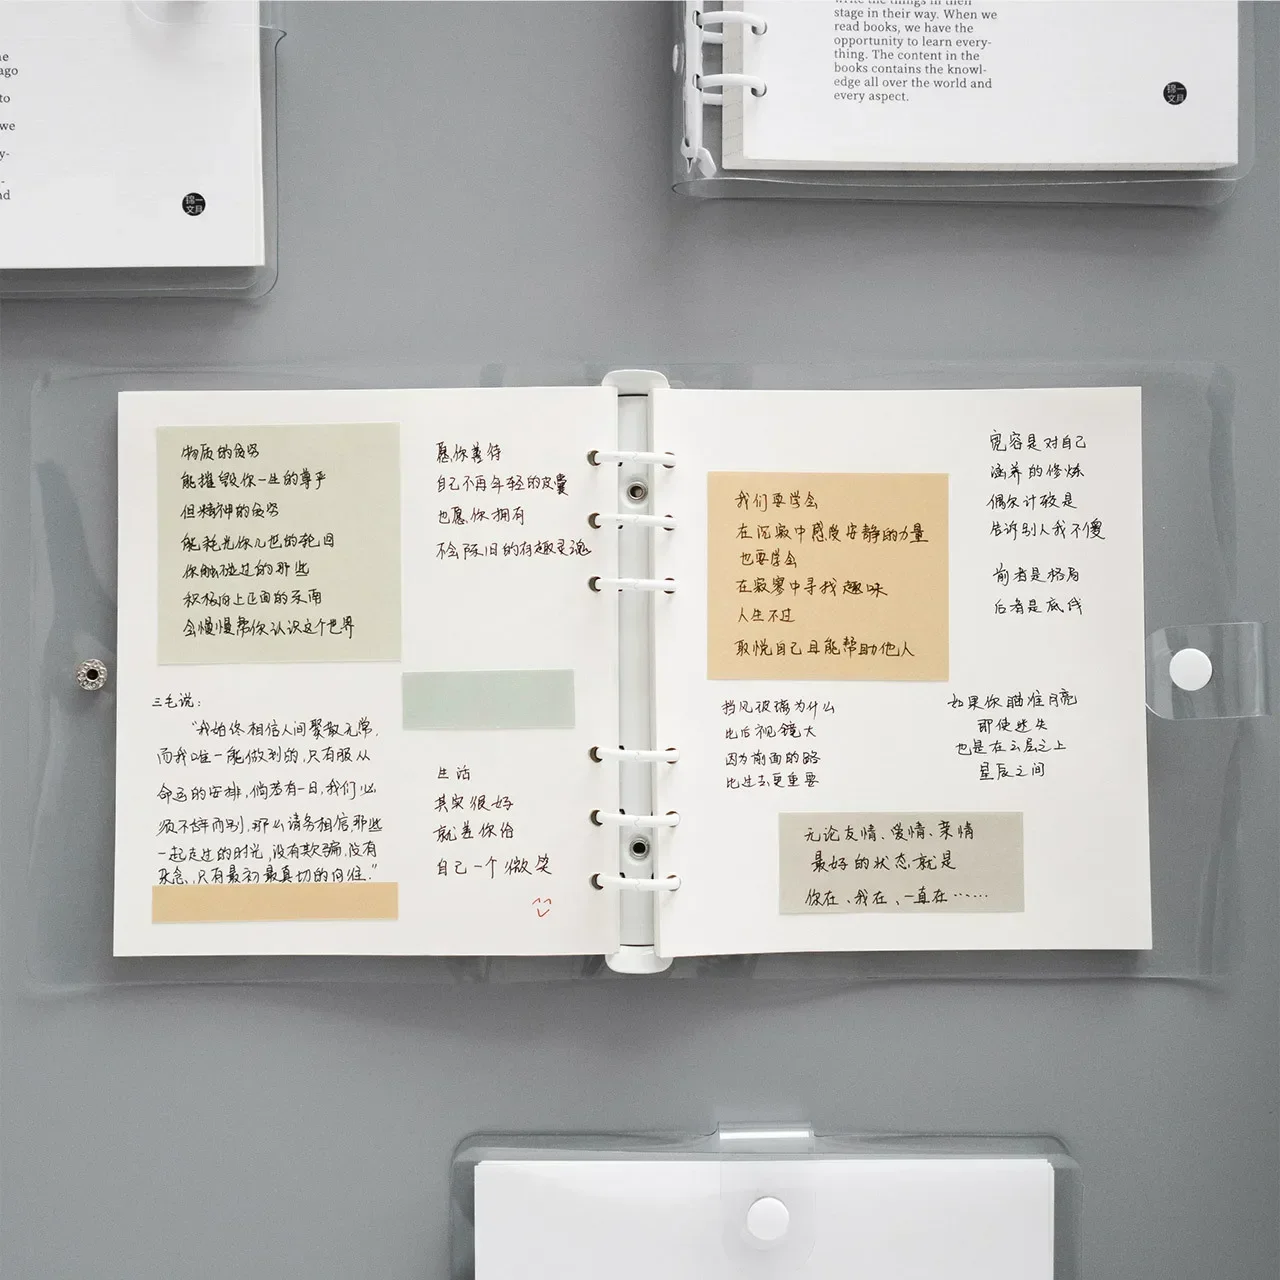 ago
to
we
y-
锦一
文具
stage in their way. When we
read books, we have the
opportunity to learn every-
thing. The content in the
books contains the knowl-
edge all over the world and
every aspect.
锦一
文具
物质的贫穷
能摧毁你一生的尊严
但精神的贫穷
能耗光你几世的轮回
你触碰过的那些
积极向上正面的东西
会慢慢帮你认识这个世界
愿你善待
自己不再年轻的皮囊
也愿你拥有
不会陈旧的有趣灵魂
三毛说:
“我始终相信人间聚散无常,
而我唯一能做到的,只有服从
命运的安排,倘若有一日,我们必
须不辞而别,那么请务相信那些
一起走过的时光,没有欺骗,没有
杂念,只有最初最真切的向往.”
生活
其实很好
就差你给
自己一个微笑
我们要学会
在沉寂中感受安静的力量
也要学会
在寂寥中寻找趣味
人生不过
取悦自己且能帮助他人
宽容是对自己
涵养的修炼
偶尔计较是
告诉别人我不傻
前者是格局
后者是底线
挡风玻璃为什么
比后视镜大
因为前面的路
比过去更重要
如果你瞄准月亮
即使迷失
也是在云层之上
星辰之间
无论友情、爱情、亲情
最好的状态就是
你在、我在、一直在……